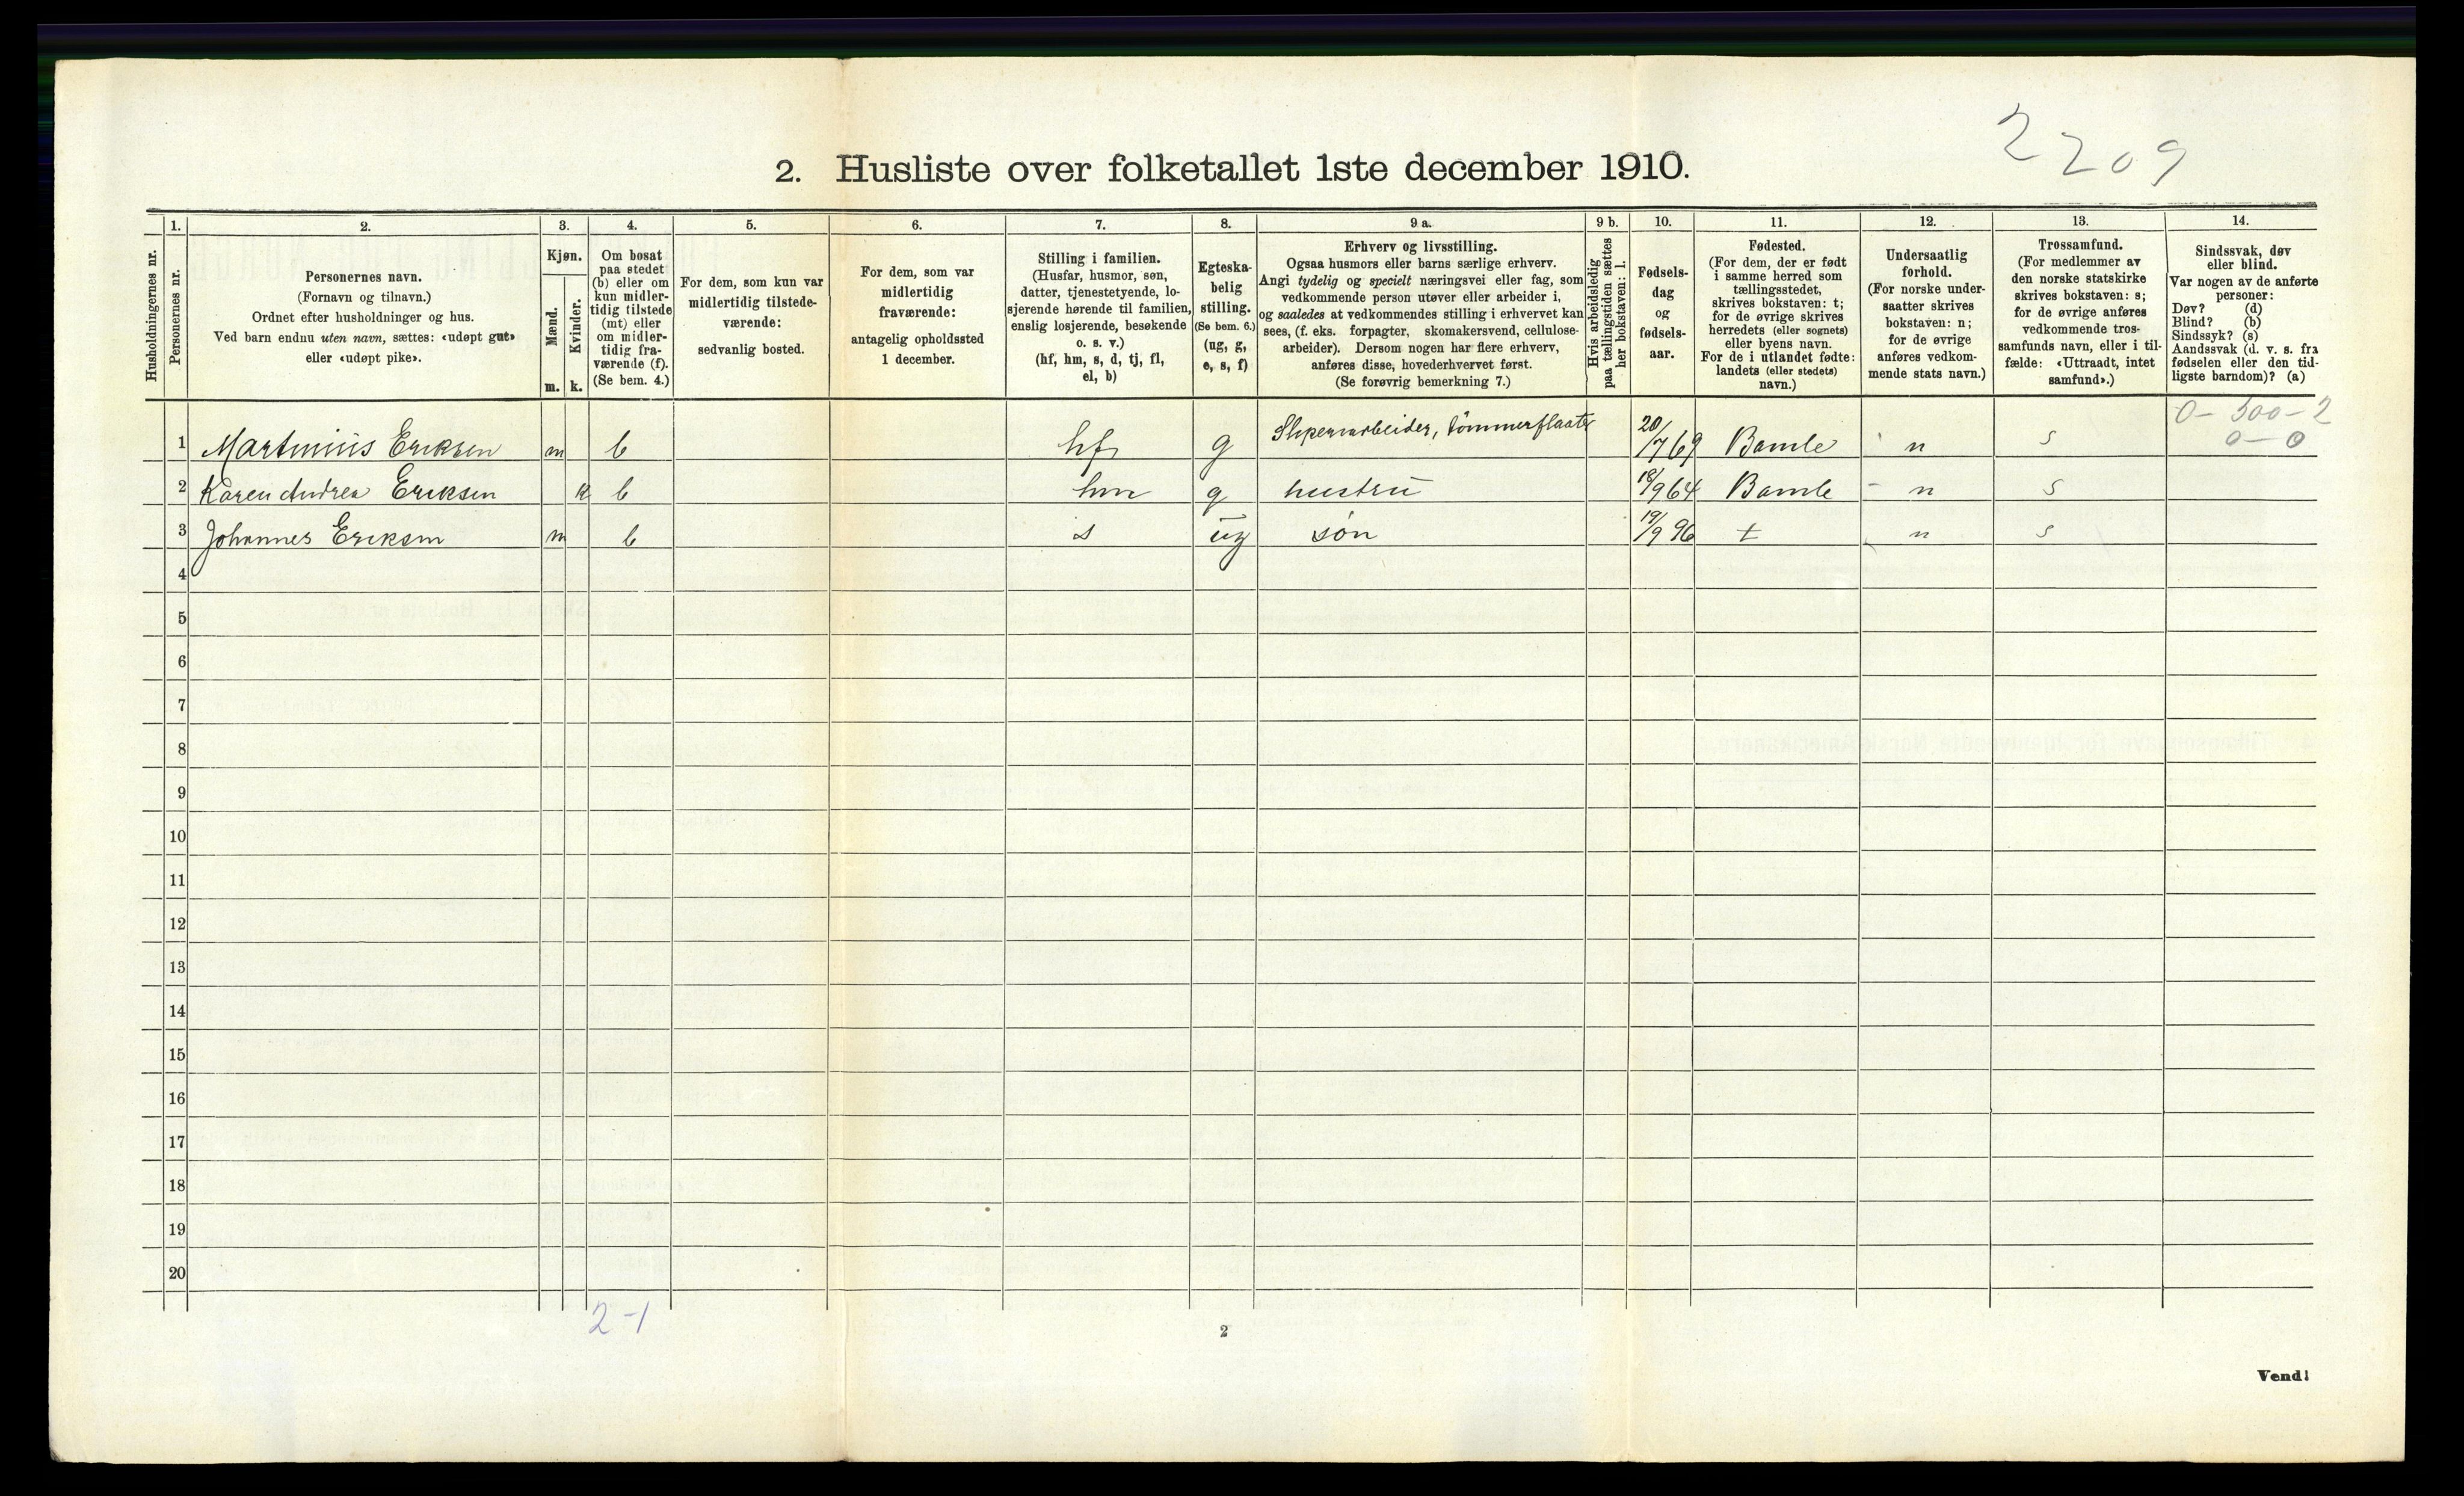 2209
2. Husliste over folketallet 1ste december 1910.
Husholdningernes nr.
1.
Personernes nr.
2.
Personernes navn.
(Fornavn og tilnavn.)
Ordnet efter husholdninger og hus.
Ved barn endnu uten navn, sættes: «udøpt gut»
eller «udøpt pike».
3.
Kjøn.
Mænd.
Kvinder.
m. k.
4.
Om bosat
paa stedet
(b) eller om
kun midler-
tidig tilstede
(mt) eller
om midler-
tidig fra-
værende (f).
(Se bem. 4.)
5.
For dem, som kun var
midlertidig tilstede-
værende:
sedvanlig bosted.
6.
For dem, som var
midlertidig
fraværende:
antagelig opholdssted
1 december.
7.
Stilling i familien.
(Husfar, husmor, søn,
datter, tjenestetyende, lo-
sjerende hørende til familien,
enslig losjerende, besøkende
o. s. v.)
(hf, hm, s, d, tj, fl,
el, b)
8.
Egteska-
belig
stilling.
(Se bem. 6.)
(ug, g,
e, s, f)
9 a.
Erhverv og livsstilling.
Ogsaa husmors eller barns særlige erhverv.
Angi tydelig og specielt næringsvei eller fag, som
vedkommende person utøver eller arbeider i,
og saaledes at vedkommendes stilling i erhvervet kan
sees, (f. eks. forpagter, skomakersvend, cellulose-
arbeider). Dersom nogen har flere erhverv,
anføres disse, hovederhvervet først.
(Se forøvrig bemerkning 7.)
9 b.
Hvis arbeidsledig
paa tællingstiden sættes
her bokstaven: l.
10.
Fødsels-
dag
og
fødsels-
aar.
11.
Fødested.
(For dem, der er født
i samme herred som
tællingsstedet,
skrives bokstaven: t;
for de øvrige skrives
herredets (eller sognets)
eller byens navn.
For de i utlandet fødte:
landets (eller stedets)
navn.)
12.
Undersaatlig
forhold.
(For norske under-
saatter skrives
bokstaven: n;
for de øvrige
anføres vedkom-
mende stats navn.)
13.
Trossamfund.
(For medlemmer av
den norske statskirke
skrives bokstaven: s;
for de øvrige anføres
vedkommende tros-
samfunds navn, eller i til-
fælde: «Uttraadt, intet
samfund».)
14.
Sindssvak, døv
eller blind.
Var nogen av de anførte
personer:
Døv? (d)
Blind? (b)
Sindssyk? (s)
Aandssvak (d. v. s. fra
fødselen eller den tid-
ligste barndom)? (a)
0 – 300 – 2
0 – 0
1 Martinius Eriksen m b hf g Sliperiarbeider, tømmerfløter 20/7 69 Bamle n s
2 Karen Andrea Eriksen k b hm g hustrü 18/9 64 Bamle n s
3 Johannes Eriksen m b s üg søn 19/9 96 t n s
4
5
6
7
8
9
10
11
12
13
14
15
16
17
18
19
20
2 – 1
2
Vend!